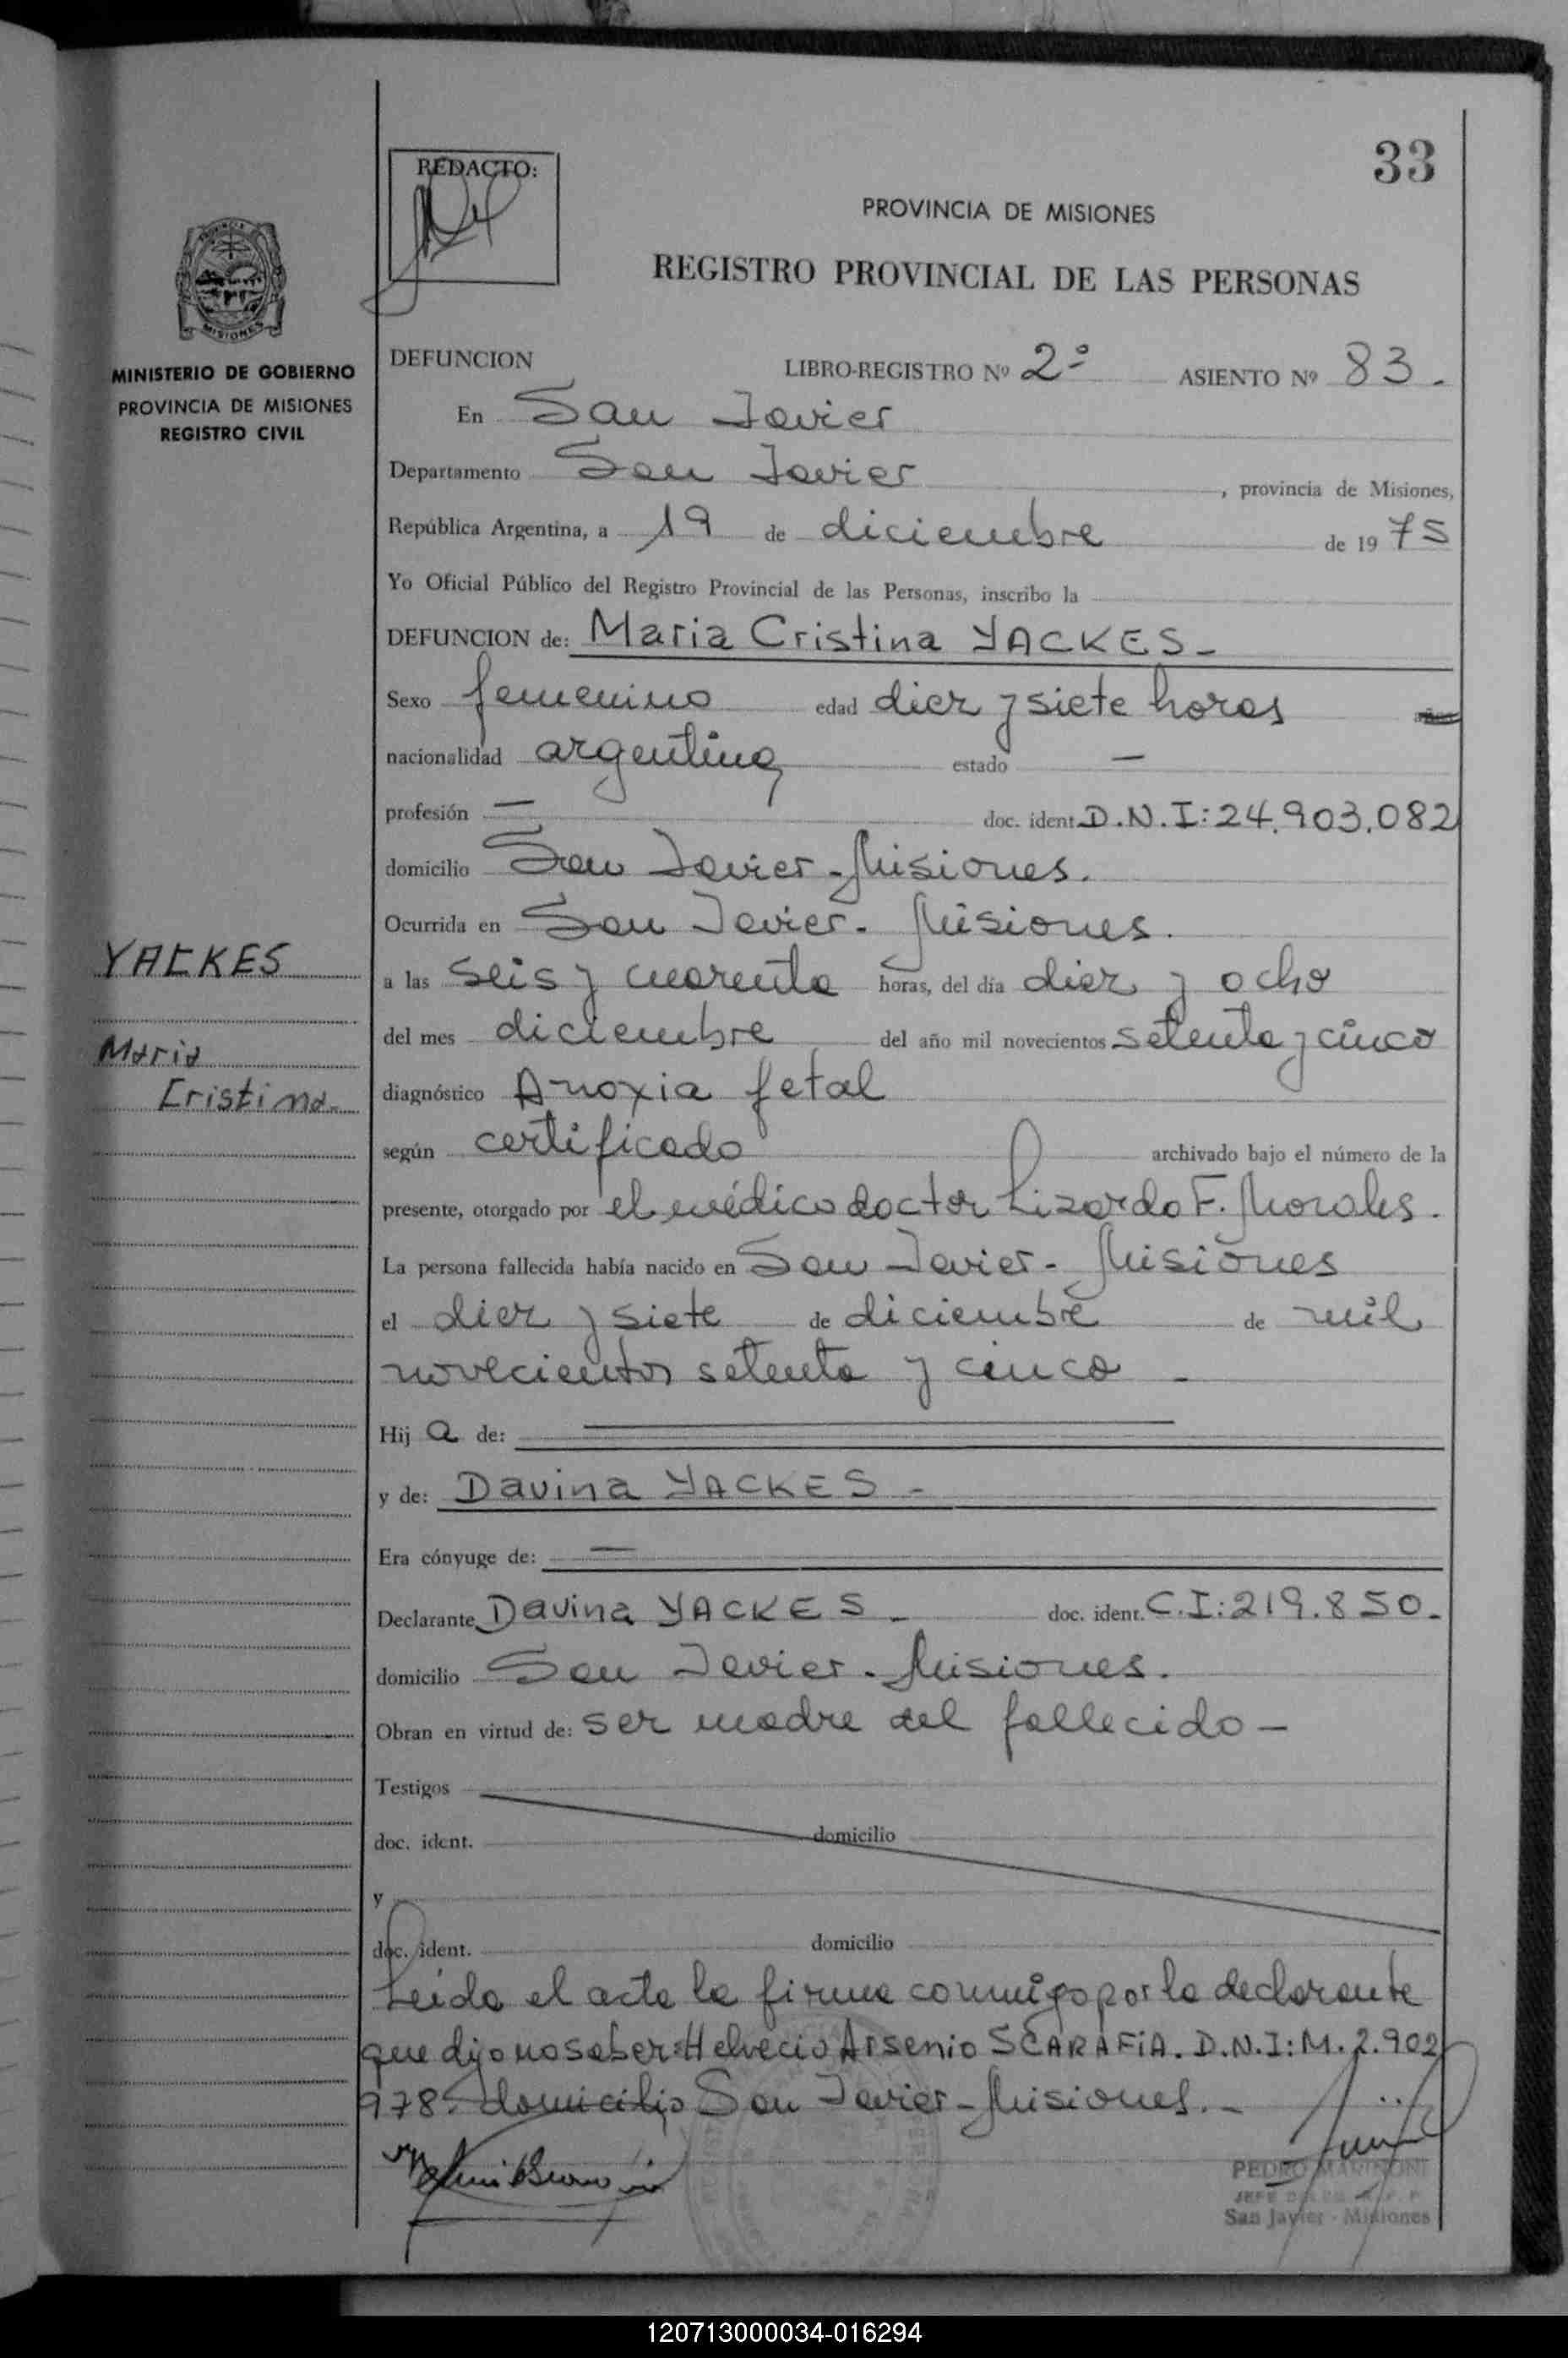 33
REDACTO:
PROVINCIA DE MISIONES
REGISTRO PROVINCIAL DE LAS PERSONAS
MISIONES
MINISTERIO DE GOBIERNO
PROVINCIA DE MISIONES
REGISTRO CIVIL
DEFUNCION LIBRO-REGISTRO Nº 2º ASIENTO Nº 83.
En San Javier
Departamento San Javier, provincia de Misiones,
República Argentina, a 19 de diciembre de 1975
Yo Oficial Público del Registro Provincial de las Personas, inscribo la
DEFUNCION de: Maria Cristina YACKES-
Sexo femenino edad diez y siete horas años
nacionalidad argentina estado —
profesión — doc. ident. D.N.I:24.903.082
domicilio San Javier-Misiones.
Ocurrida en San Javier- Misiones.
YACKES
a las seis y cuarenta horas, del día diez y ocho
del mes diciembre del año mil novecientos setenta y cinco
Maria
Cristina-
diagnóstico Anoxia fetal
según certificado archivado bajo el número de la
presente, otorgado por el médico doctor Lizardo F. Morales.
La persona fallecida había nacido en San Javier- Misiones
el diez y siete de diciembre de mil
novecientos setenta y cinco -
Hija de:
y de: Davina YACKES -
Era cónyuge de: —
Declarante Davina YACKES - doc. ident. C.I:219.850.
domicilio San Javier- Misiones.
Obran en virtud de: ser madre del fallecido-
Testigos
doc. ident. domicilio
y
doc. ident. domicilio
Leida el acta la firma conmigo por la declarante
que dijo no saber: Helvecio Arsenio SCARAFiA. D.N.I:M.2.902
978. domicilio San Javier-Misiones.-
PEDRO MARINONI
San Javier - Misiones
120713000034-016294